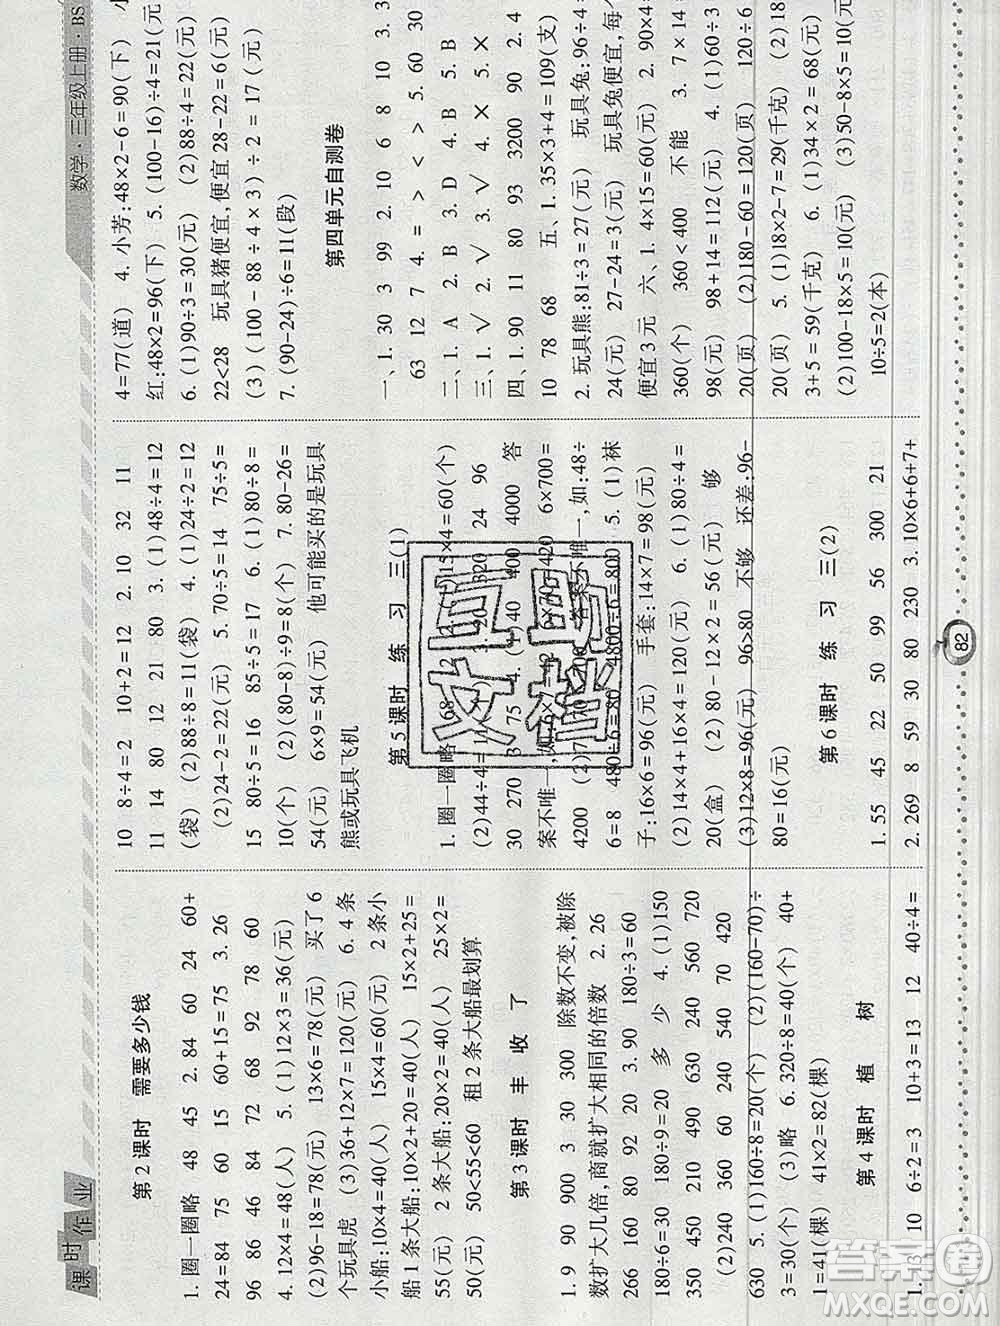 课时作业
数学·三年级上册·BS
第2课时 需要多少钱
1. 圈一圈略 48 45 2. 84 60 24 60+
24=84 75 60 15 60+15=75 3. 26
96 86 46 84 72 68 92 78 60
4. 12×4=48(人) 5. (1)12×3=36(元)
(2)96-18=78(元) 13×6=78(元) 买了6
个玩具虎 (3)36+12×7=120(元) 6. 4条
小船:10×4=40(人) 15×4=60(元) 2条小
船1条大船:10×2+20=40(人) 15×2+25=
55(元) 2条大船:20×2=40(人) 25×2=
50(元) 50<55<60 租2条大船最划算
第3课时 丰收了
1. 9 90 900 3 30 300 除数不变,被除
数扩大几倍,商就扩大相同的倍数 2. 26
266 160 80 92 20 3. 90 180÷3=60
180÷6=30 180÷9=20 多 少 4. (1)150
350 450 210 490 630 240 560 720
(2)240 360 60 240 540 70 420
630 5. (1)160÷8=20(个) (2)(160-70)÷
3=30(个) (3)略 6. 320÷8=40(个) 40+
1=41(棵) 41×2=82(棵)
第4课时 植树
1. 13 10 6÷2=3 10+3=13 12 40÷4=
10 8÷4=2 10+2=12 2. 10 32 11
11 14 80 12 21 80 3. (1)48÷4=12
(袋) (2)88÷8=11(袋) 4. (1)24÷2=12
(2)24-2=22(元) 5. 70÷5=14 75÷5=
15 80÷5=16 85÷5=17 6. (1)80÷8=
10(个) (2)(80-8)÷9=8(个) 7. 80-26=
54(元) 6×9=54(元) 他可能买的是玩具
熊或玩具飞机
第5课时 练习三(1)
1. 圈一圈略 68 15×4=60(个)
(2)44÷4=11 20 24 96
30 270 3 75 4. 40 400 4000 答
案不唯一,如 420 6×700=
4200 (2)7 答案不唯一,如:48÷
6=8 480÷6=80 4800÷6=800 5. (1)袜
子:16×6=96(元) 手套:14×7=98(元)
(2)14×4+16×4=120(元) 6. (1)80÷4=
20(盒) (2)80-12×2=56(元) 够
(3)12×8=96(元) 96>80 不够 还差:96-
80=16(元)
第6课时 练习三(2)
1. 55 45 22 50 99 56 300 21
2. 269 8 59 30 80 230 3. 10×6+6+7+
4=77(道) 4. 小芳:48×2-6=90(下) 小
红:48×2=96(下) 5. (100-16)÷4=21(元)
6. (1)90÷3=30(元) (2)88÷4=22(元)
22<28 玩具猪便宜,便宜28-22=6(元)
(3)(100-88÷4×3)÷2=17(元)
7. (90-24)÷6=11(段)
第四单元自测卷
一、1. 30 3 99 2. 10 6 8 10 3. 3
63 12 7 4. = > < > 5. 60 30
二、1. A 2. B 3. D 4. B 5. B
三、1. √ 2. √ 3. √ 4. × 5. ×
四、1. 90 11 80 93 3200 90 2. 4
10 78 68 五、1. 35×3+4=109(支)
2. 玩具熊:81÷3=27(元) 玩具兔:96÷4=
24(元) 27-24=3(元) 玩具兔便宜,每个
便宜3元 六、1. 4×15=60(元) 2. 90×4=
360(个) 360<400 不能 3. 7×14=
98(元) 98+14=112(元) 4. (1)60÷3=
20(页) (2)180-60=120(页) 120÷6=
20(页) 5. (1)18×2-7=29(千克) (2)18×
3+5=59(千克) 6. (1)34×2=68(元)
(2)100-18×5=10(元) (3)50-8×5=10(元)
10÷5=2(本)
82
答案圈
MXQE.COM